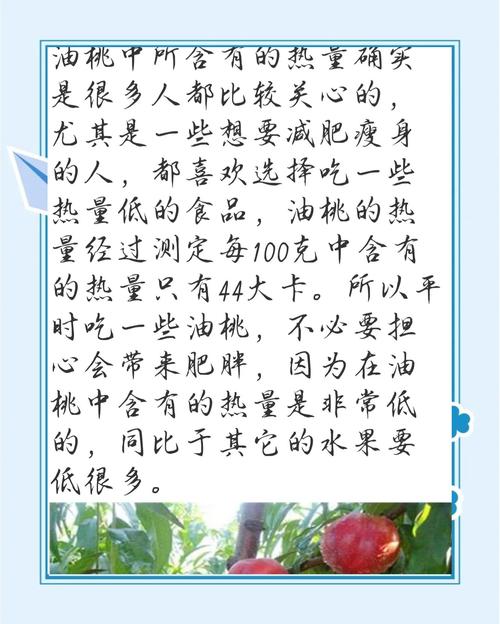 油桃中所含有的热量确实
是很多人都比较关心的，
尤其是一些想要减肥瘦身
的人，都喜欢选择吃一些
热量低的食品，油桃的热
量经过测定每100克中含有
的热量只有44大卡。所以平
时吃一些油桃，不必要担
心会带来肥胖，因为在油
桃中含有的热量是非常低
的，同比于其它的水果要
低很多。